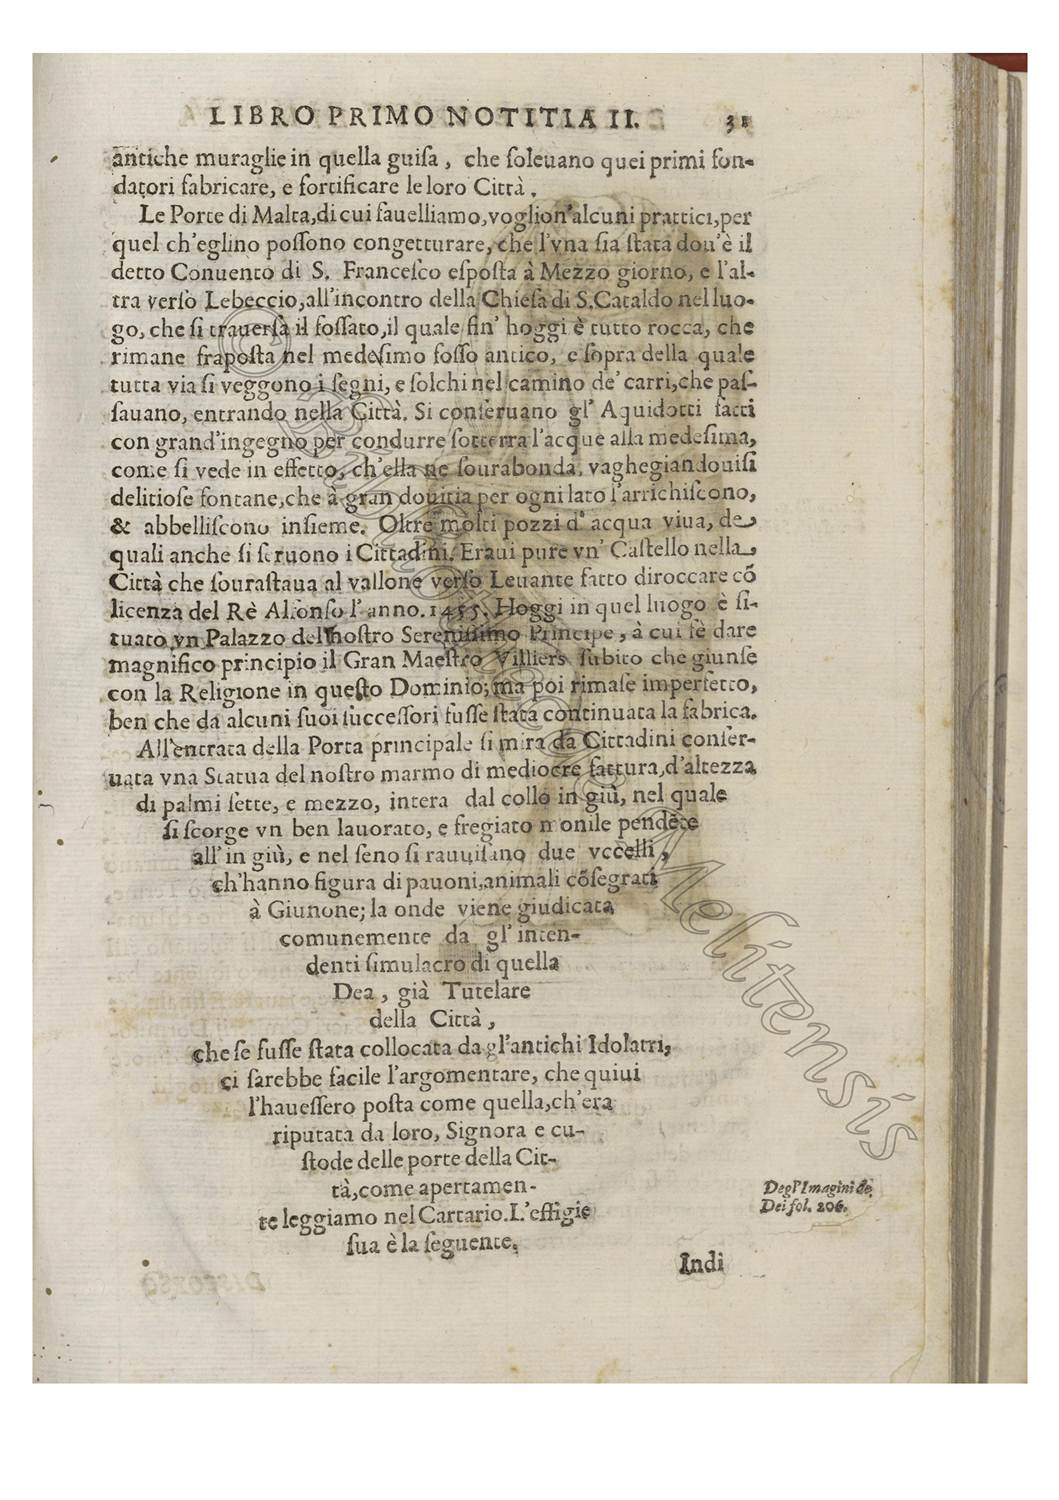 LIBRO PRIMO NOTITIA II. 31
antiche muraglie in quella guiſa, che ſoleuano quei primi fon-
datori fabricare, e fortificare le loro Città.
Le Porte di Malta, di cui fauelliamo, voglion'alcuni prattici, per
quel ch'eglino poſſono congetturare, che l'vna ſia ſtata dou'è il
detto Conuento di S. Franceſco eſpoſta à Mezzo giorno, e l'al-
tra verſo Lebeccio, all'incontro della Chieſa di S. Cataldo nel luo-
go, che ſi trauerſa il foſſato, il quale fin' hoggi è tutto rocca, che
rimane frapoſta nel medeſimo foſſo antico, e ſopra della quale
tutta via ſi veggono i ſegni, e ſolchi nel camino de' carri, che paſ-
ſauano, entrando nella Città. Si conſeruano gl' Aquidotti fatti
con grand'ingegno per condurre ſotterra l'acque alla medeſima,
come ſi vede in effetto, ch'ella ne ſourabonda, vaghegiandouiſi
delitioſe fontane, che à gran douitia per ogni lato l'arrichiſcono,
& abbelliſcono inſieme. Oltre molti pozzi d'acqua viua, de
quali anche ſi ſeruono i Cittadini. Eraui pure vn' Caſtello nella
Città che ſouraſtaua al vallone verſo Leuante fatto diroccare cõ
licenza del Rè Alfonſo l'anno. 1455. Hoggi in quel luogo è ſi-
tuato vn Palazzo del noſtro Sereniſſimo Principe, à cui fè dare
magnifico principio il Gran Maeſtro Villiers ſubito che giunſe
con la Religione in queſto Dominio; ma poi rimaſe imperfetto,
ben che da alcuni ſuoi ſucceſſori fuſſe ſtata continuata la fabrica.
All'entrata della Porta principale ſi mira da Cittadini conſer-
uata vna Statua del noſtro marmo di mediocre fattura, d'altezza
di palmi ſette, e mezzo, intera dal collo in giù, nel quale
ſi ſcorge vn ben lauorato, e fregiato monile pendẽte
all' in giù, e nel ſeno ſi rauuiſano due vccelli,
ch'hanno figura di pauoni, animali cõſegrati
à Giunone; la onde viene giudicata
comunemente da gl' inten-
denti ſimulacro di quella
Dea, già Tutelare
della Città,
che ſe fuſſe ſtata collocata da gl'antichi Idolatri,
ci ſarebbe facile l'argomentare, che quiui
l'haueſſero poſta come quella, ch'era
riputata da loro, Signora e cu-
ſtode delle porte della Cit-
tà, come apertamen-
te leggiamo nel Cartario. L'effigie
ſua è la ſeguente.
Degl'Imagini de
Dei fol. 206.
Indi
© Bibliotheca Melitensis